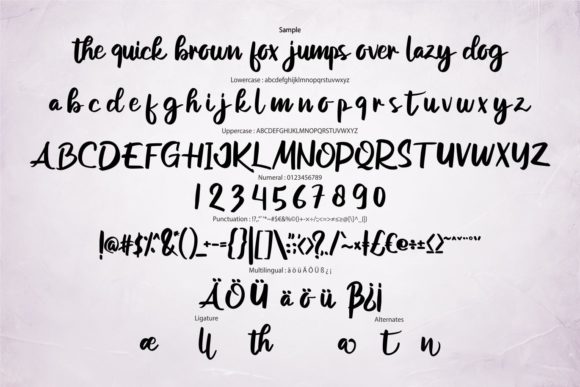 Sample
the quick brown fox jumps over lazy dog
Lowercase : abcdefghijklmnopqrstuvwxyz
a b c d e f g h i j k l m n o p q r s t u v w x y z
Uppercase : ABCDEFGHIJKLMNOPQRSTUVWXYZ
ABCDEFGHIJKLMNOPQRSTUVWXYZ
Numeral : 0123456789
1 2 3 4 5 6 7 8 9 0
Multilingual : ä ö ü Ä Ö Ü ß ¿ ¡
ÄÖÜ ä ö ü ß¿¡
Ligature Alternates
æ ll th t n